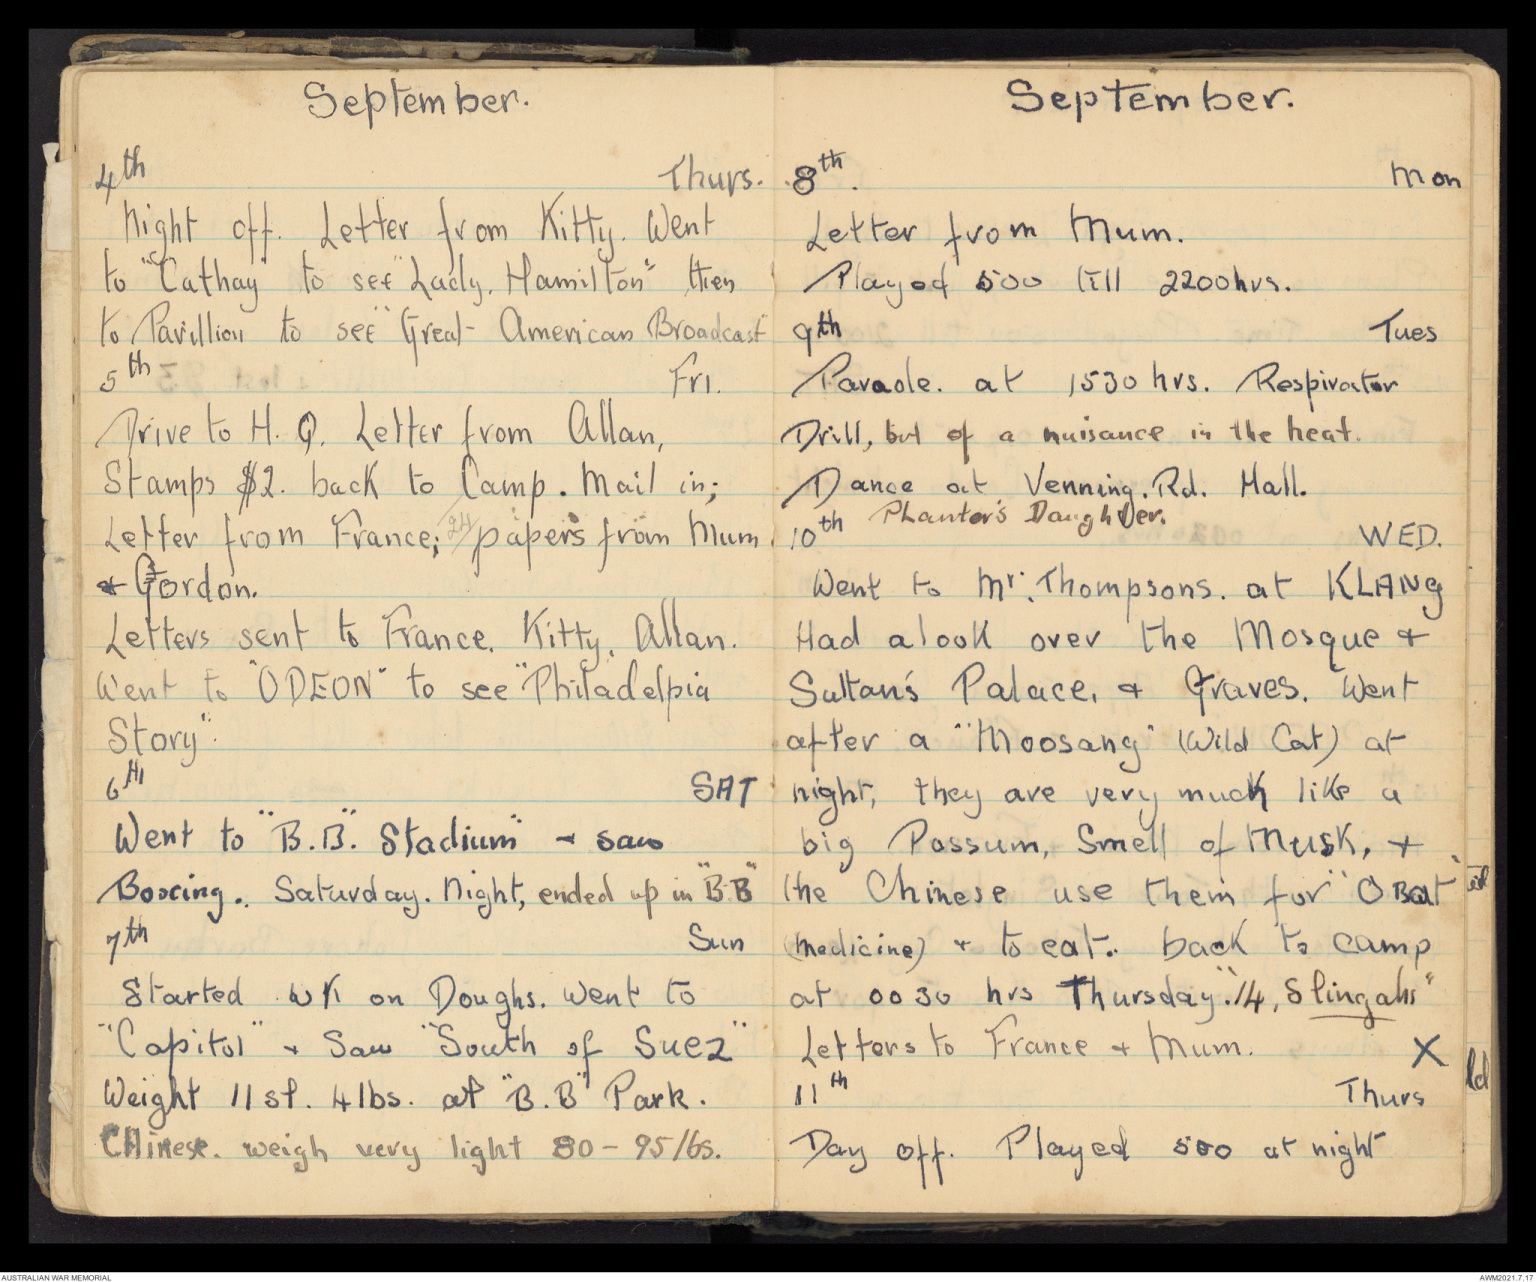 September.
4th Thurs.
Night off. Letter from Kitty. Went
to "Cathay" to see "Lady. Hamilton" then
to Pavillion to see "Great American Broadcast"
5th Fri.
Drive to H. Q. Letter from Allan,
Stamps $2. back to Camp. Mail in;
Letter from France; 24/ papers from Mum
& Gordon.
Letters sent to France. Kitty, Allan.
Went to "ODEON" to see "Philadelpia
Story".
6th SAT
Went to "B.B". Stadium" & saw
Boxing. Saturday. Night, ended up in "B.B"
7th Sun
Started wk on Doughs. Went to
"Capitol" & Saw "South of Suez"
Weight 11 st. 4 lbs. at "B.B" Park.
Chinese. weigh very light 80 - 95 lbs.
September.
8th. Mon
Letter from Mum.
Played 500 till 2200hrs.
9th Tues
Parade. at 1530 hrs. Respirator
Drill, bit of a nuisance in the heat.
Dance at Venning. Rd. Hall.
Phantor's Daughter.
10th WED.
Went to Mr. Thompsons. at KLANg
Had a look over the Mosque &
Sultan's Palace, & Graves. Went
after a "Moosang" (Wild Cat) at
night, they are very much like a
big Possum, Smell of Musk, &
the Chinese use them for "OBat"
(medicine) & to eat. back to camp
at 0030 hrs Thursday. "14, Slingahs"
Letters to France & Mum. X
11th Thurs
Day off. Played 500 at night
ld
AUSTRALIAN WAR MEMORIAL
AWM2021.7.17